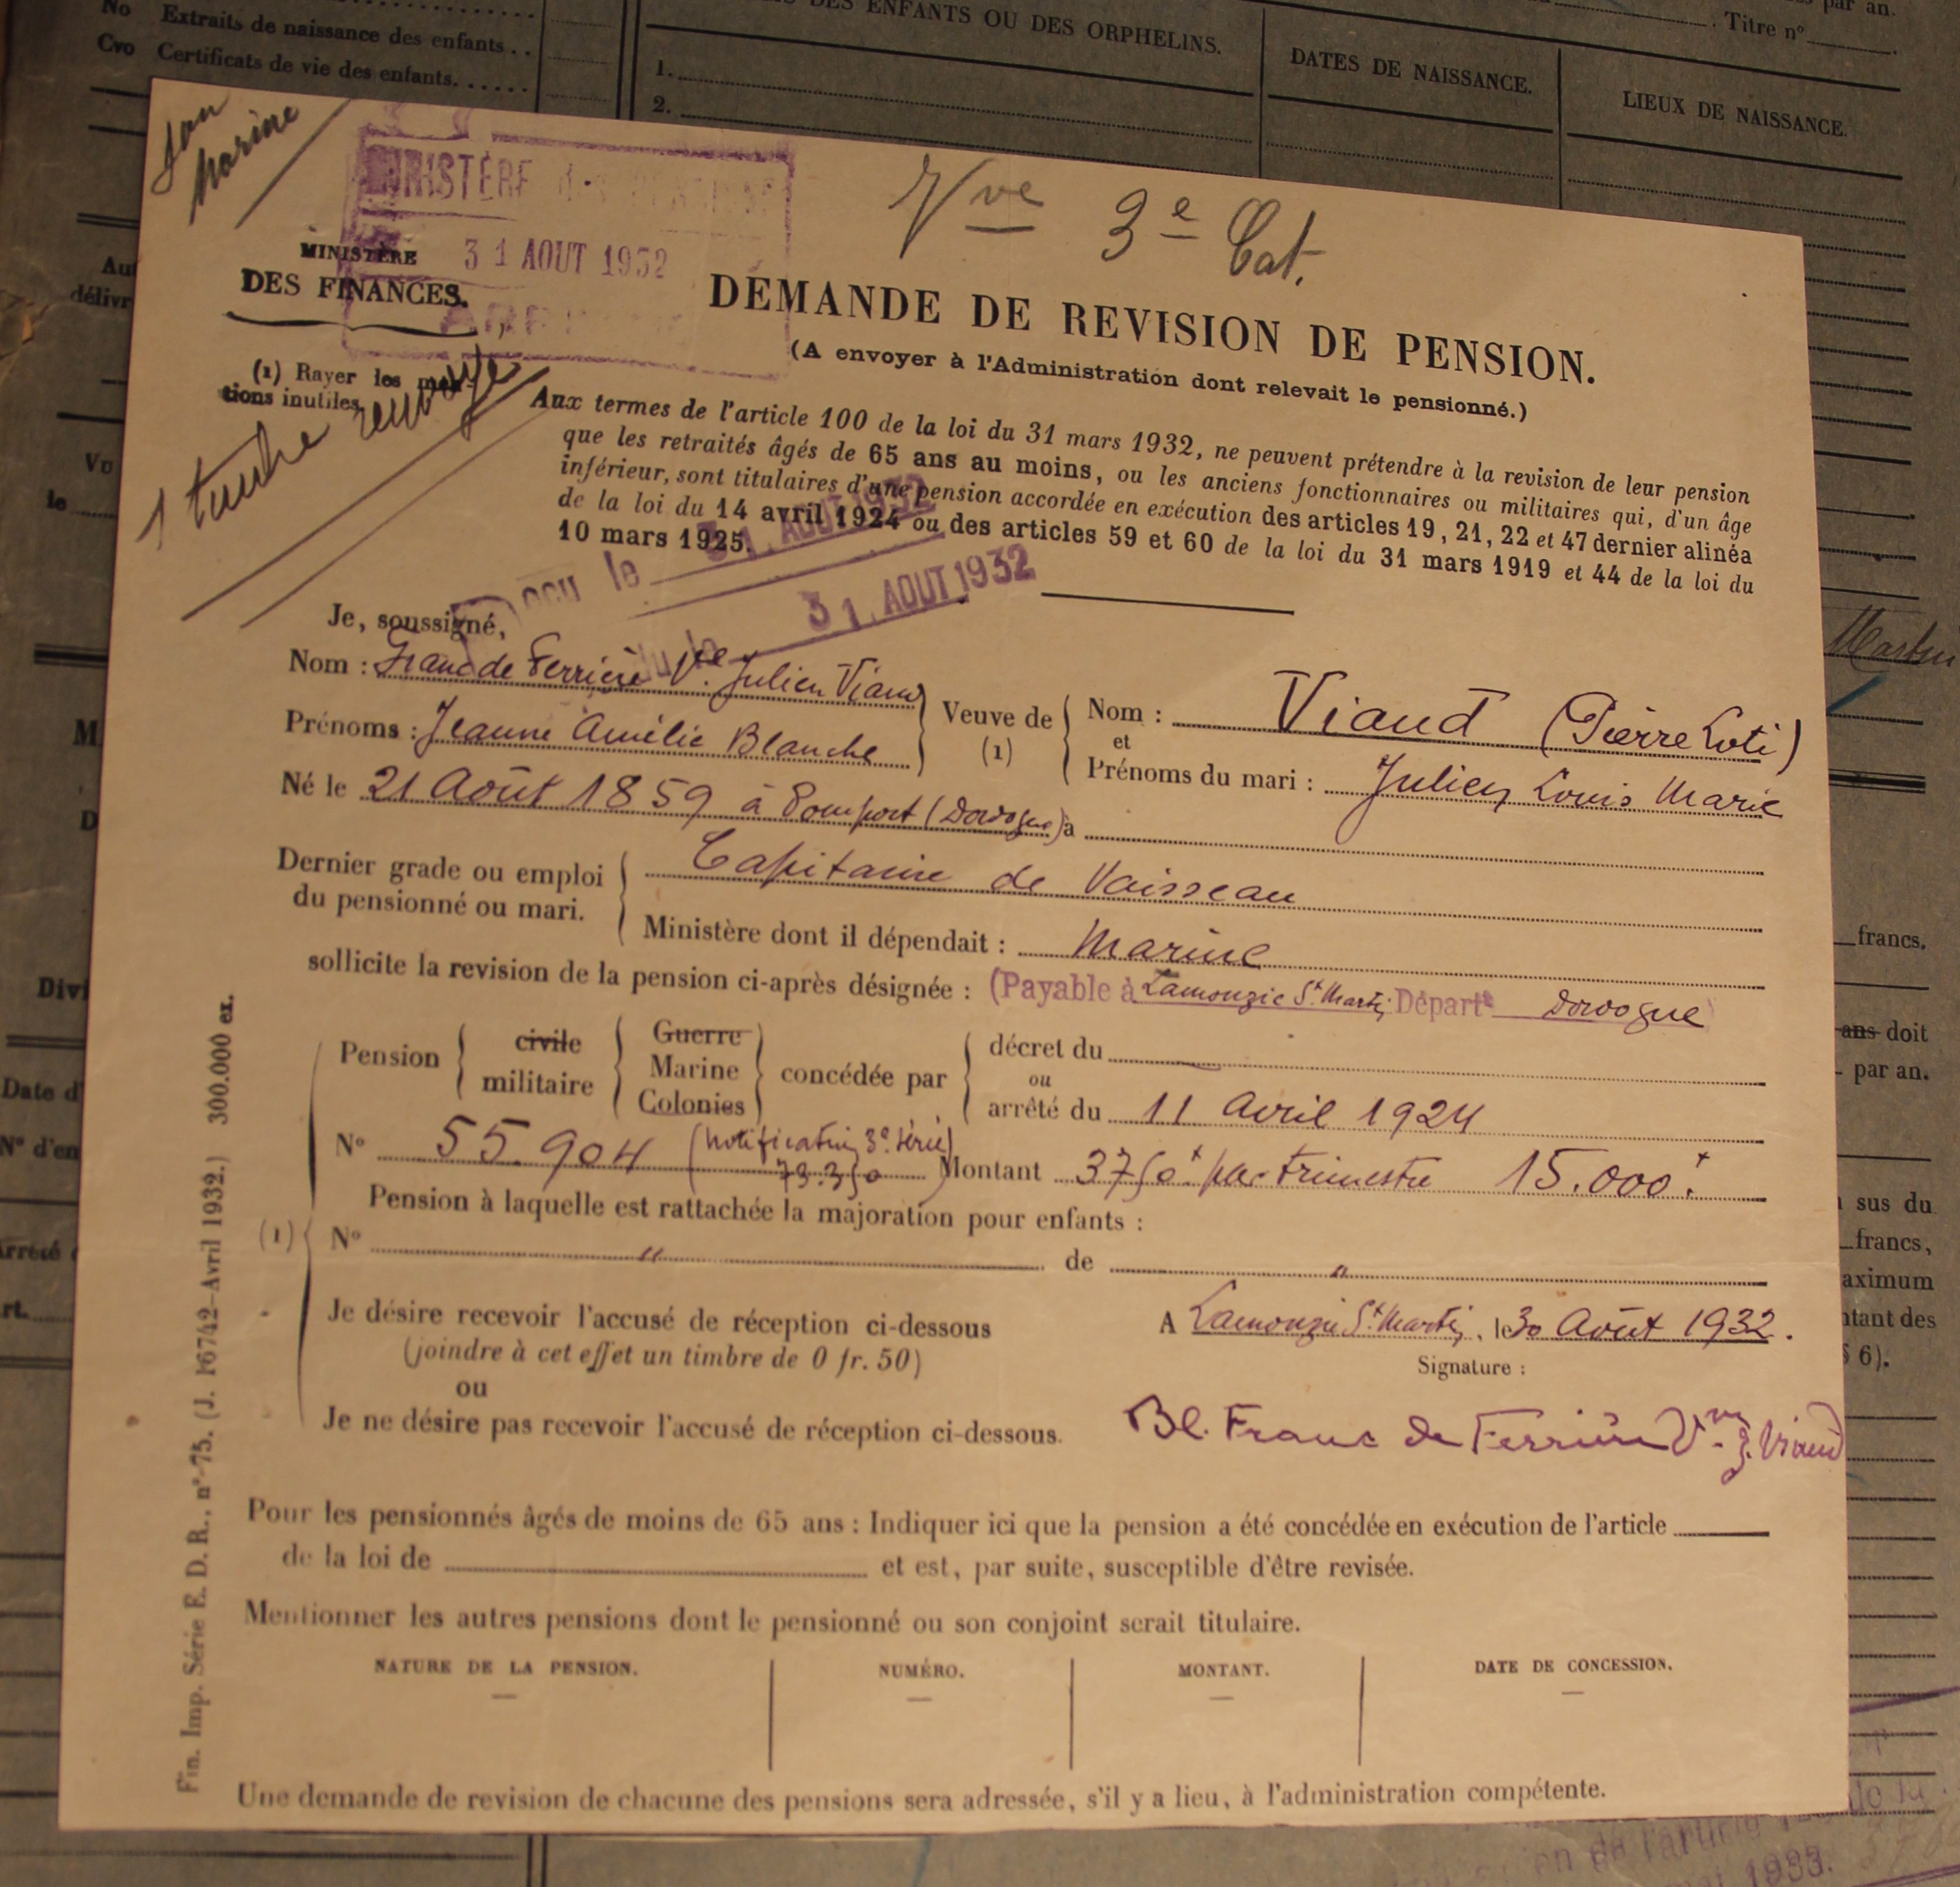 No Extraits de naissance des enfants..
Cvo Certificats de vie des enfants......
DES ENFANTS OU DES ORPHELINS.
1.
2.
DATES DE NAISSANCE.
LIEUX DE NAISSANCE.
par an.
Titre n°
Marine
MINISTÈRE
31 AOUT 1932
Vve 3e Cat.
MINISTÈRE
DES FINANCES.
(1) Rayer les men-
tions inutiles
1 timbre
DEMANDE DE REVISION DE PENSION.
(A envoyer à l'Administration dont relevait le pensionné.)
Aux termes de l'article 100 de la loi du 31 mars 1932, ne peuvent prétendre à la revision de leur pension
que les retraités âgés de 65 ans au moins, ou les anciens fonctionnaires ou militaires qui, d'un âge
inférieur, sont titulaires d'une pension accordée en exécution des articles 19, 21, 22 et 47 dernier alinéa
de la loi du 14 avril 1924 ou des articles 59 et 60 de la loi du 31 mars 1919 et 44 de la loi du
10 mars 1925.
le 31 AOUT 1932
31 AOUT 1932
Je, soussigné,
Nom : Franc de Ferrière Ve. Julien Viaud
Prénoms : Jeanne Amélie Blanche
Veuve de
(1)
Nom : Viaud (Pierre Loti)
et
Prénoms du mari : Julien Louis Marie
Né le 21 Août 1859 à Pomport (Dordogne) à
Dernier grade ou emploi
du pensionné ou mari.
Capitaine de Vaisseau
Ministère dont il dépendait : Marine
sollicite la revision de la pension ci-après désignée : (Payable à Lamonzie St. Martin Départt Dordogne)
Pension
civile
militaire
Guerre
Marine
Colonies
concédée par
décret du
ou
arrêté du 11 Avril 1924
N° 55.904 (notification 3e série) 79.350 Montant 3750f par trimestre 15.000f.
Pension à laquelle est rattachée la majoration pour enfants :
(1) N° " de "
Je désire recevoir l'accusé de réception ci-dessous
(joindre à cet effet un timbre de 0 fr. 50)
ou
Je ne désire pas recevoir l'accusé de réception ci-dessous.
A Lamonzie St. Martin, le 30 Août 1932.
Signature :
Bl. Franc de Ferrière Vve J. Viaud
Pour les pensionnés âgés de moins de 65 ans : Indiquer ici que la pension a été concédée en exécution de l'article
de la loi de et est, par suite, susceptible d'être revisée.
Mentionner les autres pensions dont le pensionné ou son conjoint serait titulaire.
NATURE DE LA PENSION.
NUMÉRO.
MONTANT.
DATE DE CONCESSION.
Une demande de revision de chacune des pensions sera adressée, s'il y a lieu, à l'administration compétente.
Fin. Imp. Série E. D. R., n° 75. (J. 16742-Avril 1932.) 300.000 ex.
francs.
ans doit
par an.
sus du
francs,
6).
1933.